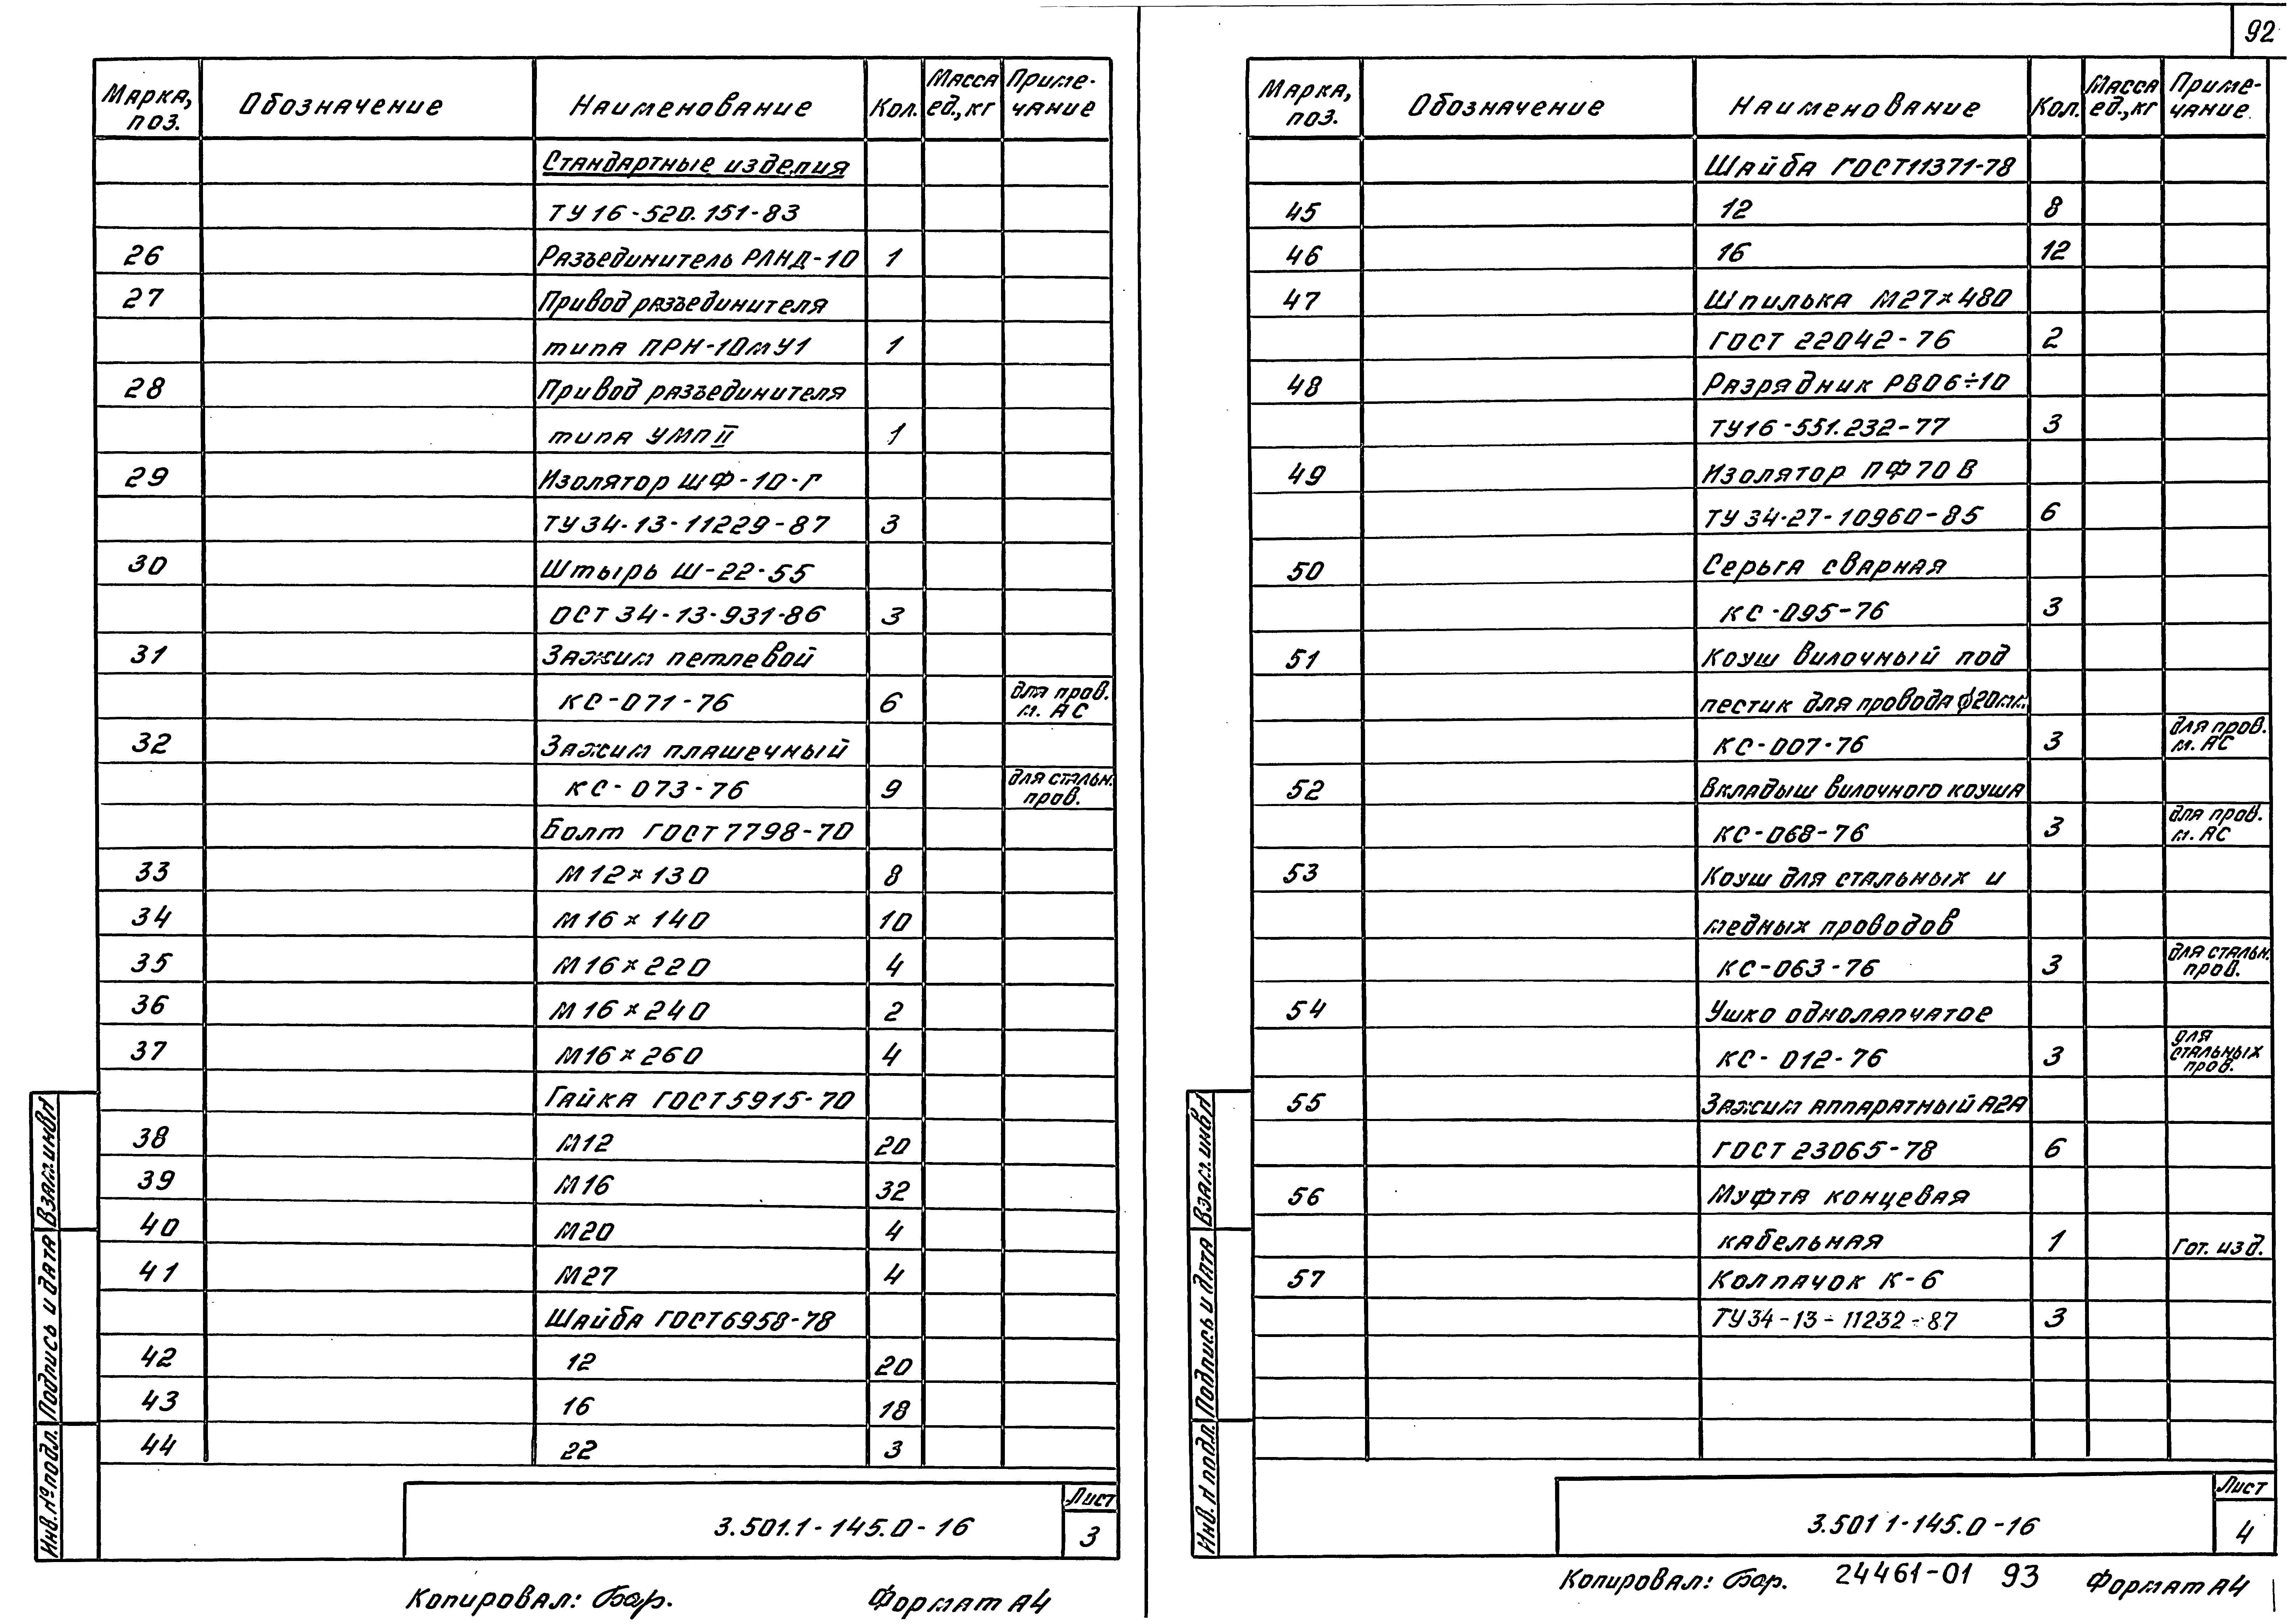 92
Марка, поз. Обозначение Наименование Кол. Масса ед., кг Приме- чание
Стандартные изделия
ТУ 16-520.151-83
26 Разъединитель РЛНД-10 1
27 Привод разъединителя
типа ПРН-10мУ1 1
28 Привод разъединителя
типа УМП II 1
29 Изолятор ШФ-10-Г
ТУ 34-13-11229-87 3
30 Штырь Ш-22-55
ОСТ 34-13-931-86 3
31 Зажим петлевой
КС-071-76 6 для пров. м. АС
32 Зажим плашечный
КС-073-76 9 для стальн. пров.
Болт ГОСТ 7798-70
33 М12×130 8
34 М16×140 10
35 М16×220 4
36 М16×240 2
37 М16×260 4
Гайка ГОСТ 5915-70
38 М12 20
39 М16 32
40 М20 4
41 М27 4
Шайба ГОСТ 6958-78
42 12 20
43 16 18
44 22 3
Инв. № подл. Подпись и дата Взам. инв №
3.501.1-145.0-16
Лист
3
Копировал: Бор. Формат А4
Марка, поз. Обозначение Наименование Кол. Масса ед., кг Приме- чание
Шайба ГОСТ 11371-78
45 12 8
46 16 12
47 Шпилька М27×480
ГОСТ 22042-76 2
48 Разрядник РВО6÷10
ТУ16-551.232-77 3
49 Изолятор ПФ70В
ТУ 34-27-10960-85 6
50 Серьга сварная
КС-095-76 3
51 Коуш вилочный под
пестик для провода ф20мм.
КС-007-76 3 для пров. м. АС
52 Вкладыш вилочного коуша
КС-068-76 3 для пров. м. АС
53 Коуш для стальных и
медных проводов
КС-063-76 3 для стальн. пров.
54 Ушко однолапчатое
КС-012-76 3 для стальных пров.
55 Зажим аппаратный А2А
ГОСТ 23065-78 6
56 Муфта концевая
кабельная 1 Гот. изд.
57 Колпачок К-6
ТУ34-13-11232-87 3
Инв. № подл. Подпись и дата Взам. инв №
3.501 1-145.0-16
Лист
4
Копировал: Бор. 24461-01 93 Формат А4